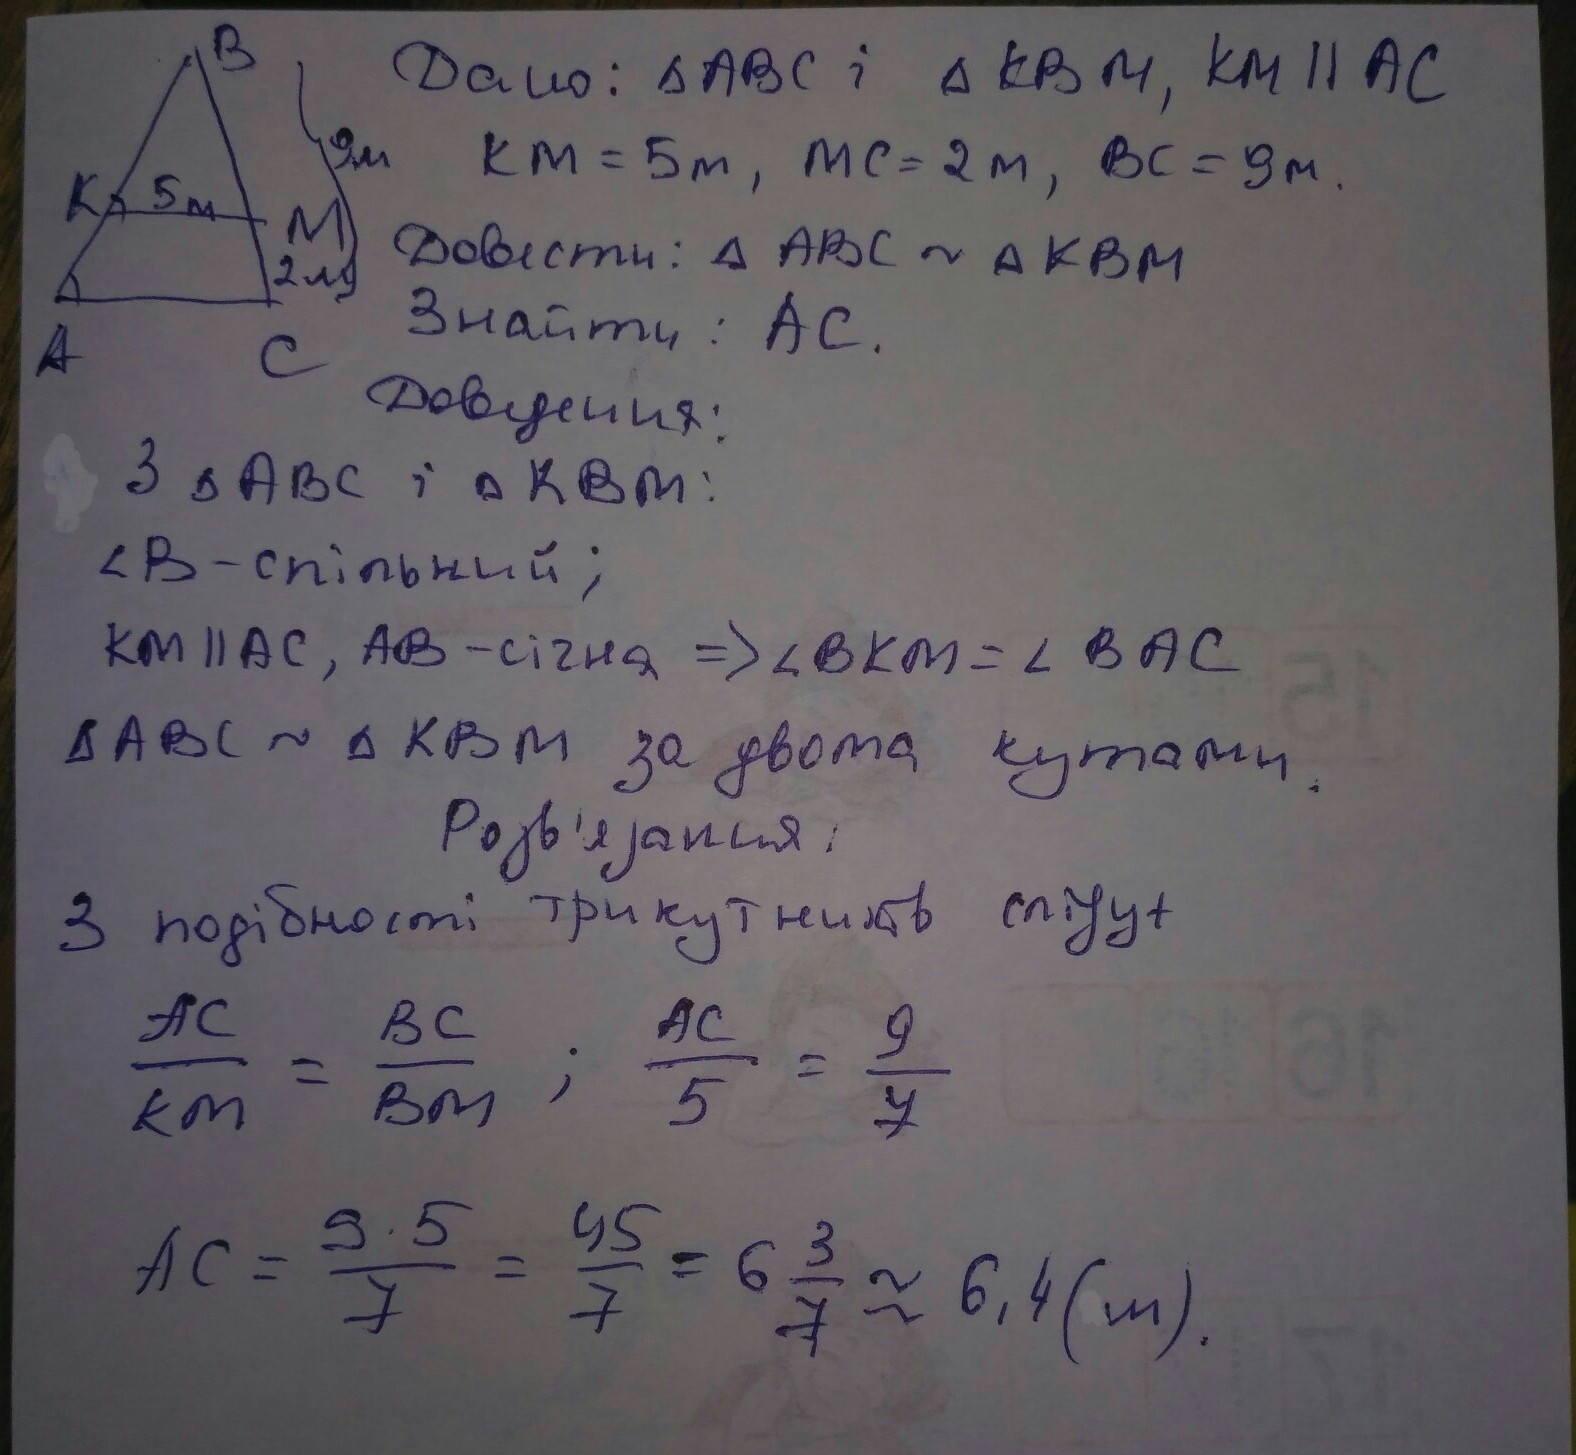 B
9м
K 5м
M
2м
A C
Дано: ΔABC і ΔKBM, KM || AC
KM = 5м, MC = 2м, BC = 9м.
Довести: Δ ABC ~ ΔKBM
Знайти: AC.
Доведення:
З ΔABC і ΔKBM:
∠B - спільний;
KM || AC, AB - січна => ∠BKM = ∠BAC
ΔABC ~ ΔKBM за двома кутами.
Розв'язання:
З подібності трикутників
AC/KM = BC/BM ; AC/5 = 9/7
AC = 9·5/7 = 45/7 = 6 3/7 ≈ 6,4(м).
15
16 16
17